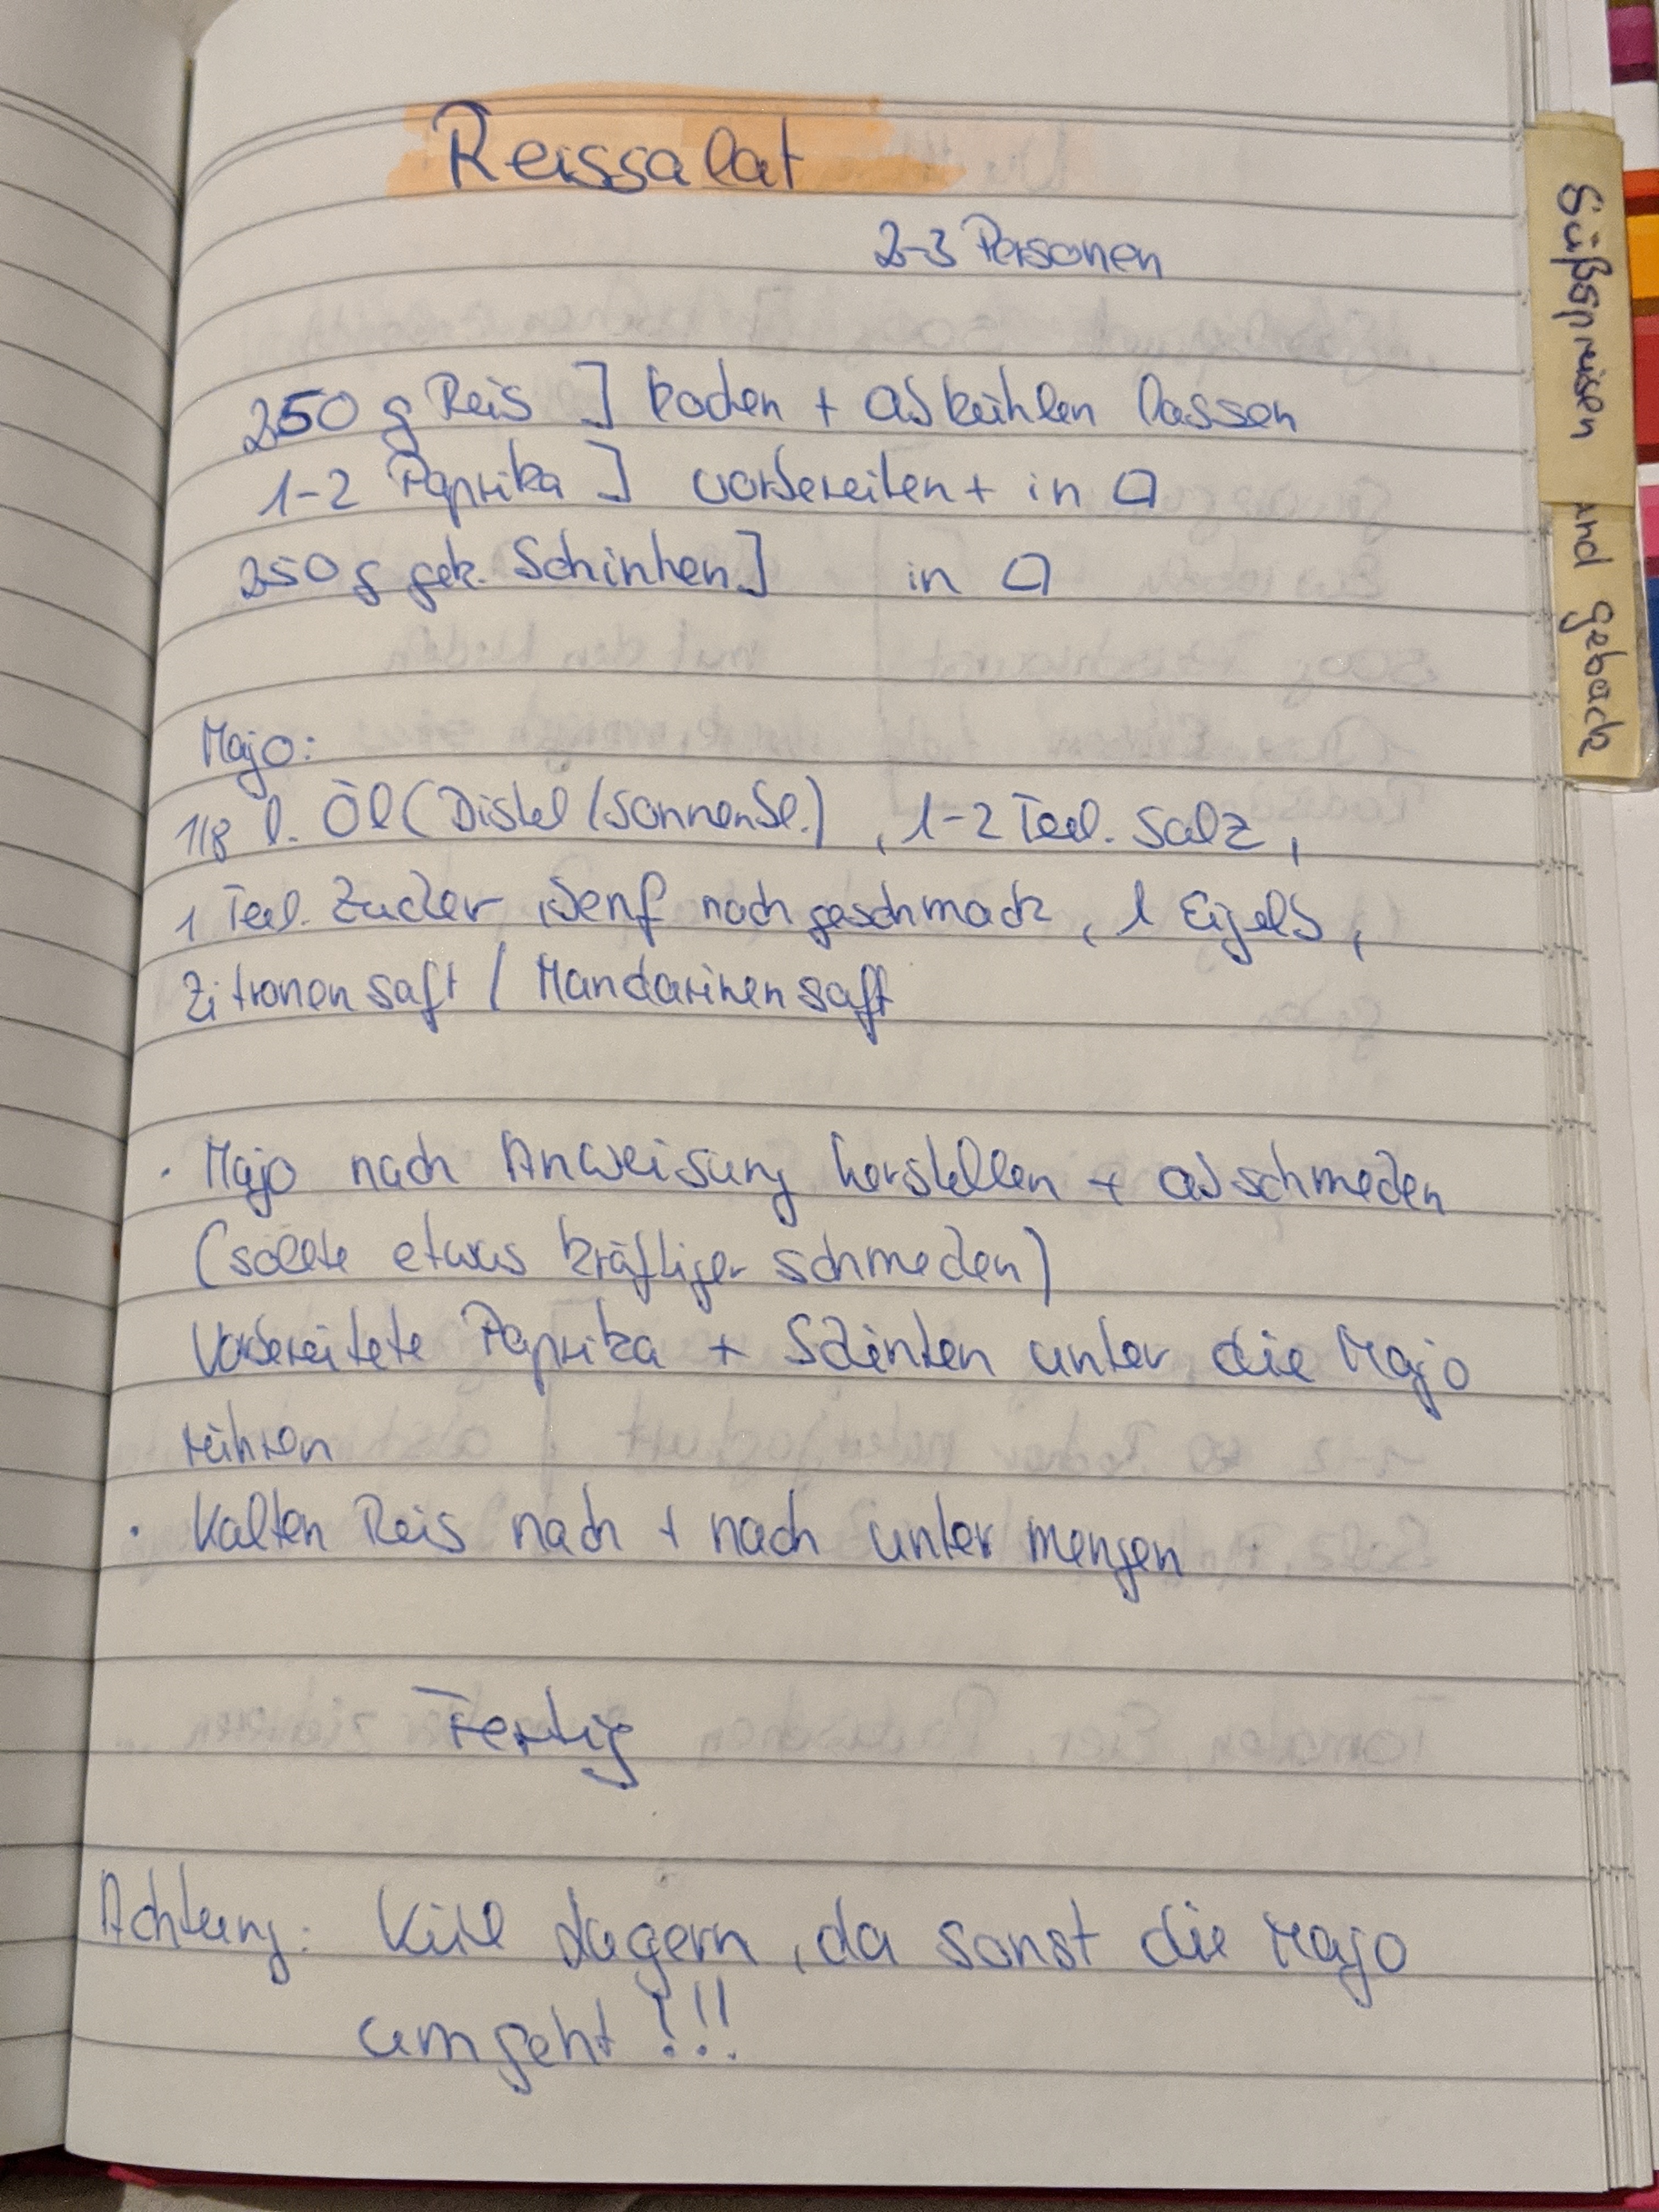 Reissalat
2-3 Personen
250 g Reis ] kochen + abkühlen lassen
1-2 Paprika ] vorbereiten + in □
250 g gek. Schinken ] in □
Majo:
1/8 l. Öl (Distel/Sonnenbl.), 1-2 Teel. Salz,
1 Teel. Zucker, Senf nach geschmack, 1 Eigelb,
Zitronensaft / Mandarinensaft
· Majo nach Anweisung herstellen + abschmecken
(sollte etwas kräftiger schmecken)
Vorbereitete Paprika + Schinken unter die Majo
rühren
· Kalten Reis nach + nach unter mengen
Fertig
Achtung: Kühl lagern, da sonst die Majo
umgeht!!!
Süßspreissen und gebäck